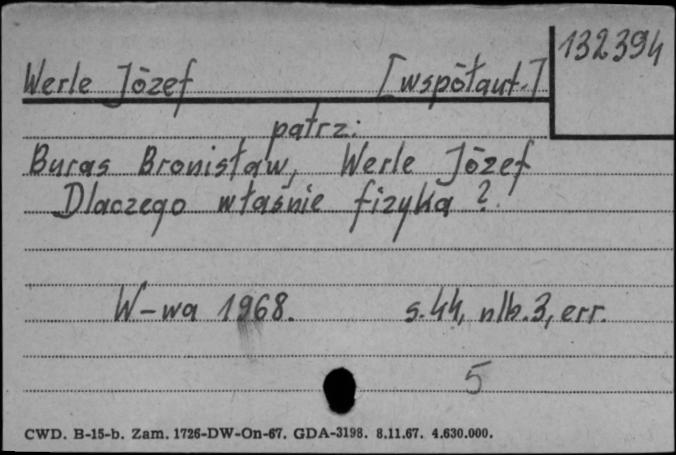 132394
Werle Józef [współaut.]
patrz:
Buras Bronisław, Werle Józef
Dlaczego właśnie fizyka?
W-wa 1968. s.44, nlb.3, err.
5
CWD. B-15-b. Zam. 1726-DW-On-67. GDA-3198. 8.11.67. 4.630.000.